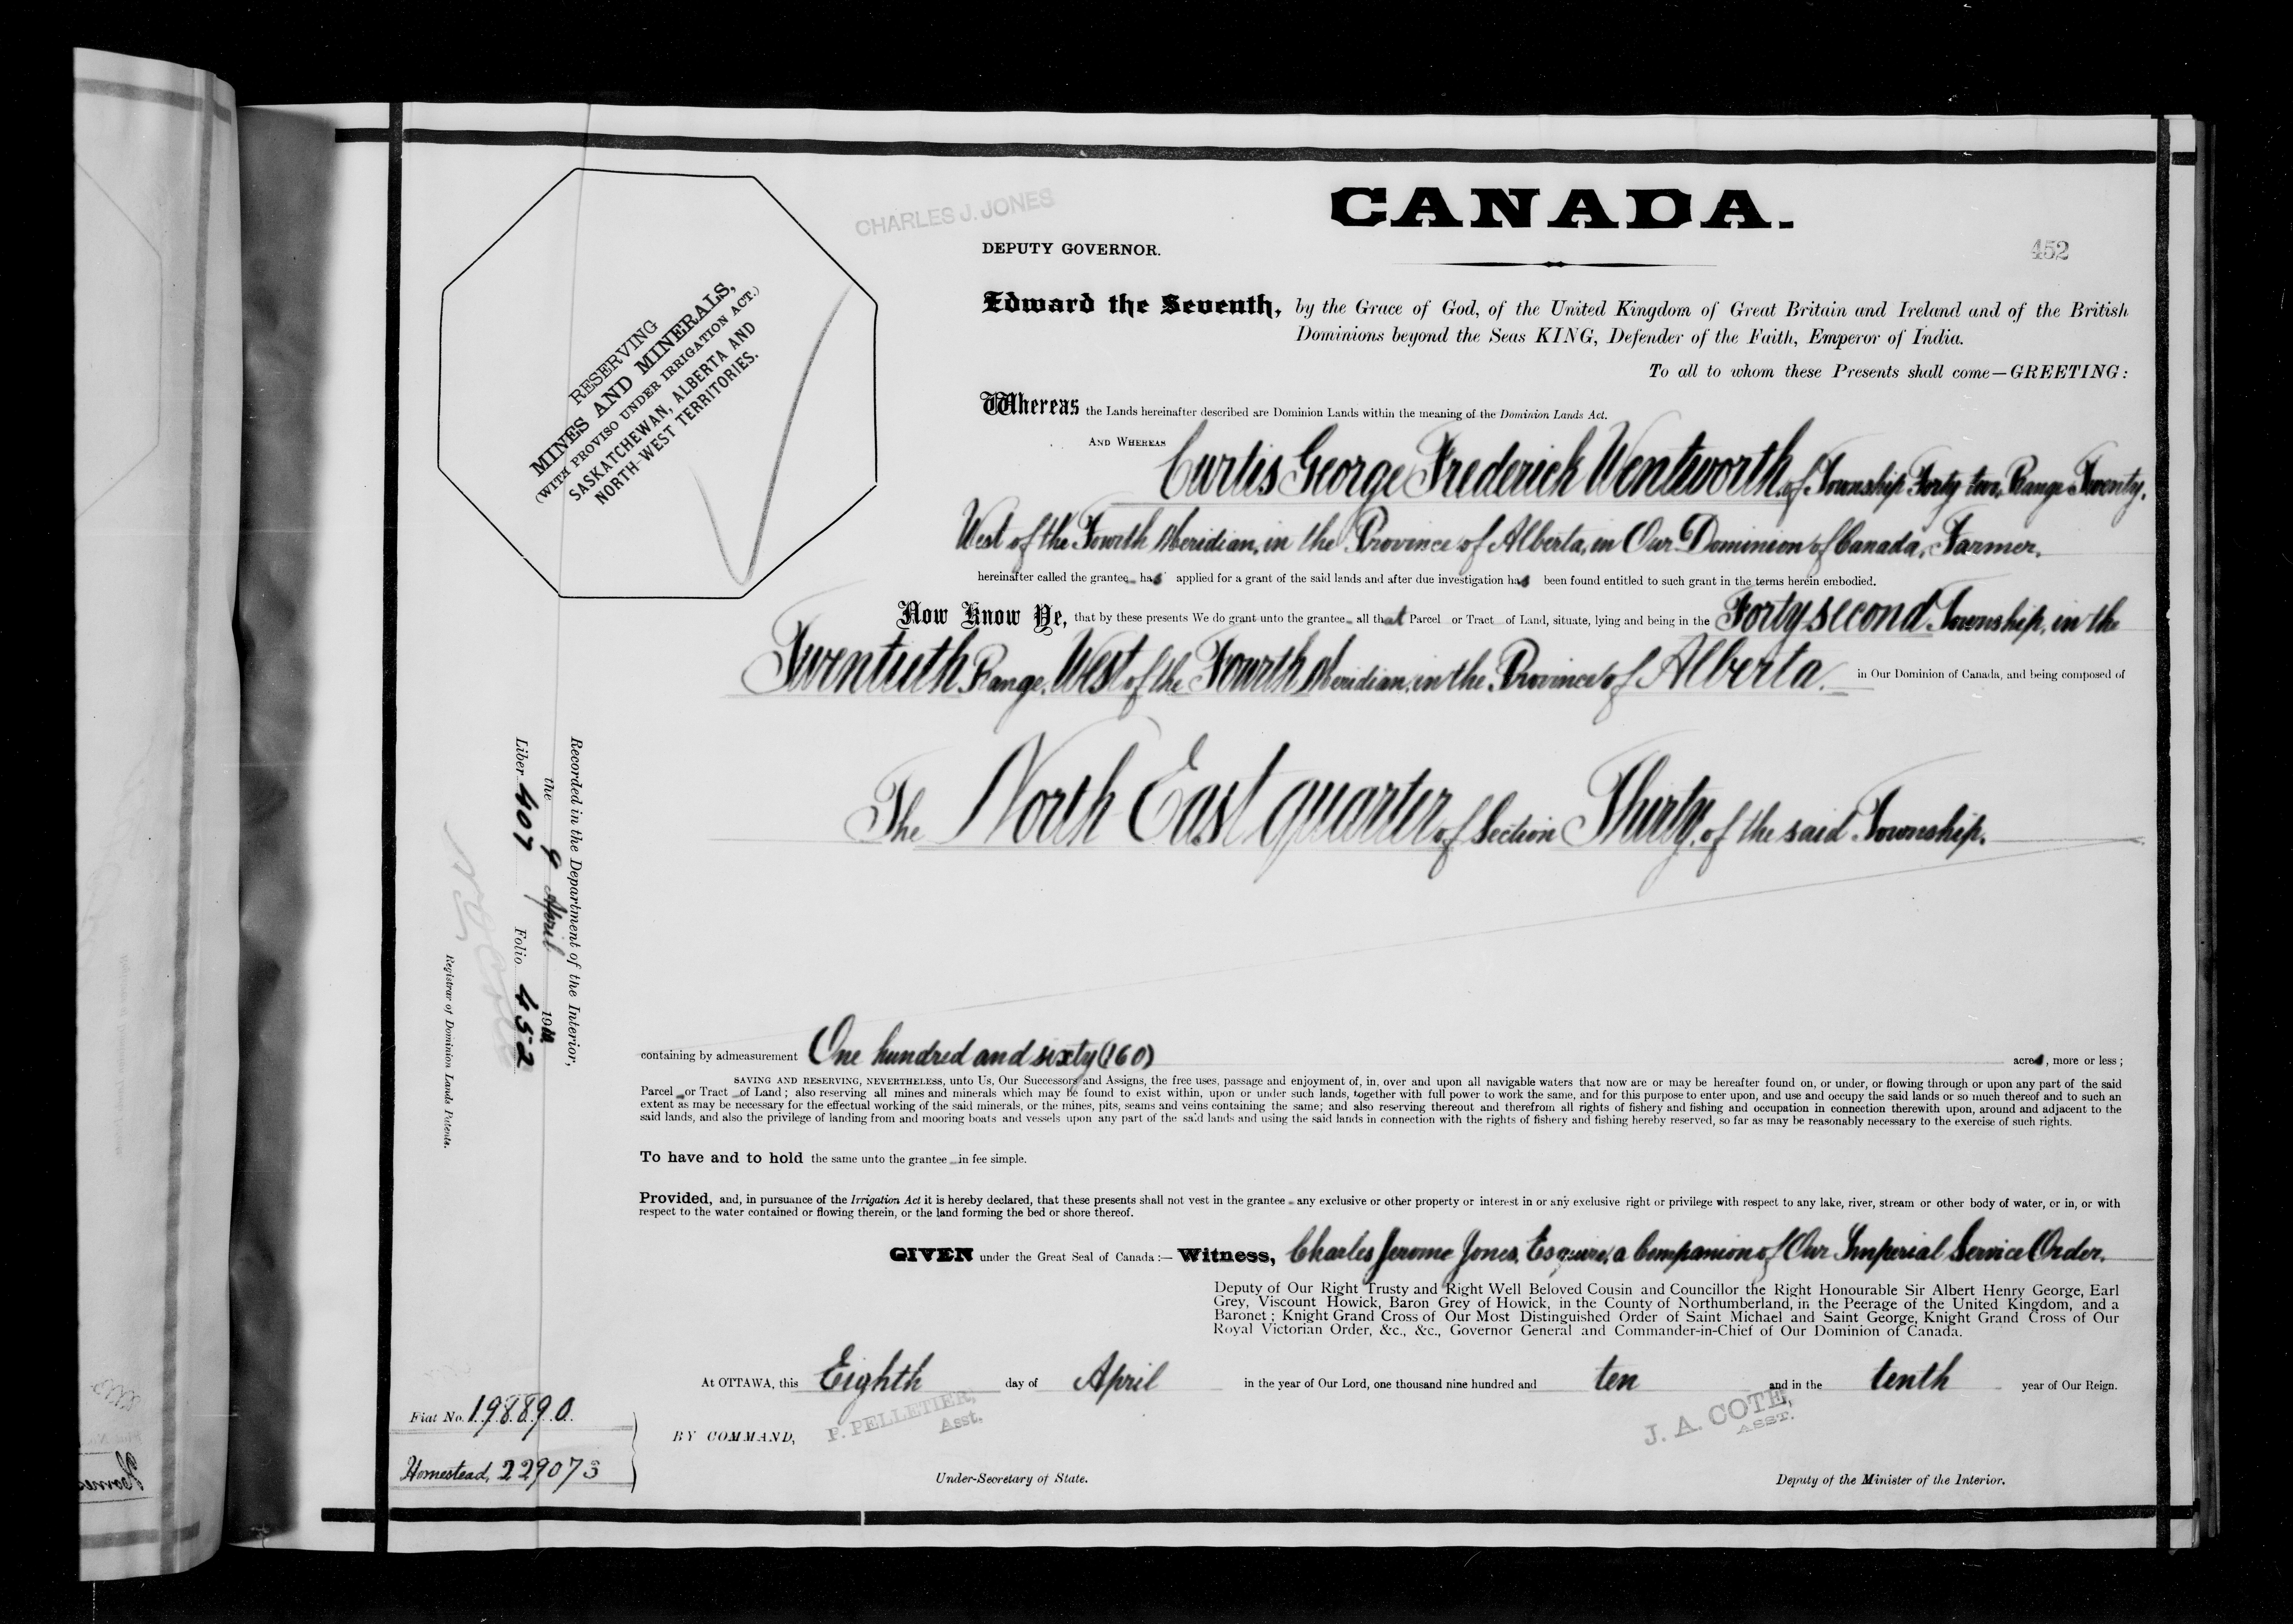 CHARLES J. JONES
CANADA.
DEPUTY GOVERNOR.
452
RESERVING
MINES AND MINERALS,
(WITH PROVISO UNDER IRRIGATION ACT.)
SASKATCHEWAN, ALBERTA AND
NORTH-WEST TERRITORIES.
Edward the Seventh, by the Grace of God, of the United Kingdom of Great Britain and Ireland and of the British
Dominions beyond the Seas KING, Defender of the Faith, Emperor of India.
To all to whom these Presents shall come—GREETING:
Whereas the Lands hereinafter described are Dominion Lands within the meaning of the Dominion Lands Act.
AND WHEREAS Curtis George Frederick Wentworth, of Township Forty two, Range Twenty,
West of the Fourth Meridian, in the Province of Alberta, in Our Dominion of Canada, Farmer,
hereinafter called the grantee has applied for a grant of the said lands and after due investigation has been found entitled to such grant in the terms herein embodied.
Now Know Ye, that by these presents We do grant unto the grantee all that Parcel or Tract of Land, situate, lying and being in the Forty second Township, in the
Twentieth Range, West of the Fourth Meridian, in the Province of Alberta, in Our Dominion of Canada, and being composed of
The North East quarter of Section Thirty, of the said Township.
containing by admeasurement One hundred and sixty (160) acres, more or less;
SAVING AND RESERVING, NEVERTHELESS, unto Us, Our Successors and Assigns, the free uses, passage and enjoyment of, in, over and upon all navigable waters that now are or may be hereafter found on, or under, or flowing through or upon any part of the said
Parcel or Tract of Land; also reserving all mines and minerals which may be found to exist within, upon or under such lands, together with full power to work the same, and for this purpose to enter upon, and use and occupy the said lands or so much thereof and to such an
extent as may be necessary for the effectual working of the said minerals, or the mines, pits, seams and veins containing the same; and also reserving thereout and therefrom all rights of fishery and fishing and occupation in connection therewith upon, around and adjacent to the
said lands, and also the privilege of landing from and mooring boats and vessels upon any part of the said lands and using the said lands in connection with the rights of fishery and fishing hereby reserved, so far as may be reasonably necessary to the exercise of such rights.
To have and to hold the same unto the grantee in fee simple.
Provided, and, in pursuance of the Irrigation Act it is hereby declared, that these presents shall not vest in the grantee any exclusive or other property or interest in or any exclusive right or privilege with respect to any lake, river, stream or other body of water, or in, or with
respect to the water contained or flowing therein, or the land forming the bed or shore thereof.
GIVEN under the Great Seal of Canada:— Witness, Charles Jerome Jones, Esquire, a Companion of Our Imperial Service Order,
Deputy of Our Right Trusty and Right Well Beloved Cousin and Councillor the Right Honourable Sir Albert Henry George, Earl
Grey, Viscount Howick, Baron Grey of Howick, in the County of Northumberland, in the Peerage of the United Kingdom, and a
Baronet; Knight Grand Cross of Our Most Distinguished Order of Saint Michael and Saint George, Knight Grand Cross of Our
Royal Victorian Order, &c., &c., Governor General and Commander-in-Chief of Our Dominion of Canada.
At OTTAWA, this Eighth day of April in the year of Our Lord, one thousand nine hundred and ten and in the tenth year of Our Reign.
BY COMMAND,
P. PELLETIER,
Asst.
J. A. COTE,
ASST.
Under-Secretary of State.
Deputy of the Minister of the Interior.
Recorded in the Department of the Interior,
the 9 April 1910
Liber 407 Folio 452
Registrar of Dominion Lands Patents.
Fiat No. 198890.
Homestead, 229073